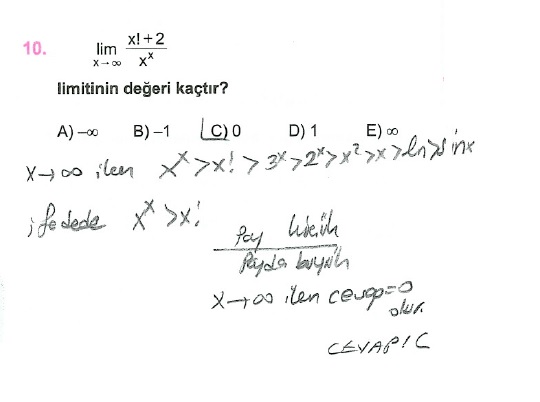 10. lim x→∞ x!+2 / x^x
limitinin değeri kaçtır?
A) –∞ B) –1 C) 0 D) 1 E) ∞
x→∞ iken x^x > x! > 3^x > 2^x > x^2 > x > ln > sinx
ifadede x^x > x!
Pay küçük
Payda büyük
x→∞ iken cevap=0
olur.
CEVAP: C